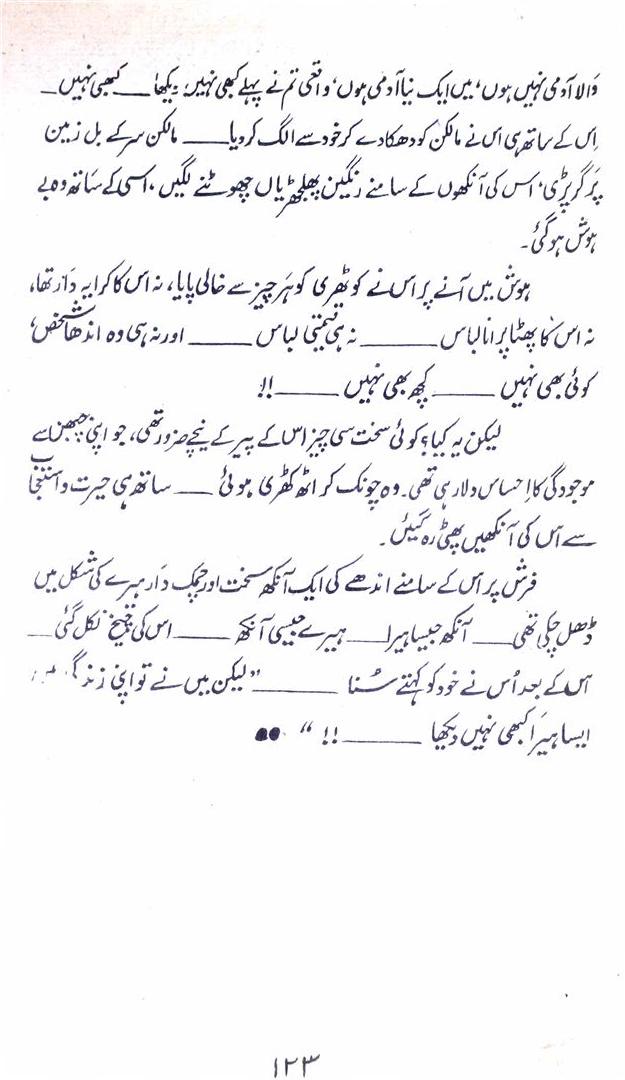 والا آدمی نہیں ہوں، میں ایک نیا آدمی ہوں، واقعی تم نے پہلے کبھی نہیں دیکھا ــــ کبھی نہیں ــ
اس کے ساتھ ہی اس نے مالکن کو دھکا دے کر خود سے الگ کر دیا ــــــ مالکن سر کے بل زمین
پر گر پڑی، اس کی آنکھوں کے سامنے رنگین پھلجھڑیاں چھوٹنے لگیں، اسی کے ساتھ وہ بے
ہوش ہو گئی۔
ہوش میں آنے پر اس نے کوٹھری کو ہر چیز سے خالی پایا، نہ اس کا کرایہ دار تھا،
نہ اس کا پھٹا پرانا لباس ــــــــ نہ ہی قیمتی لباس ــــــ اور نہ ہی وہ اندھا شخص،
کوئی بھی نہیں ــــــ کچھ بھی نہیں ــــــ !!
لیکن یہ کیا؟ کوئی سخت سی چیز اس کے پیر کے نیچے ضرور تھی، جو اپنی چبھن سے
موجودگی کا احساس دلا رہی تھی۔ وہ چونک کر اٹھ کھڑی ہوئی ــــ ساتھ ہی حیرت و استعجاب
سے اس کی آنکھیں پھٹی رہ گئیں۔
فرش پر اس کے سامنے اندھے کی ایک آنکھ سخت اور چمک دار ہیرے کی شکل میں
ڈھل چکی تھی ــــ آنکھ جیسا ہیرا ــــ ہیرے جیسی آنکھ ــــــ اس کی چیخ نکل گئی ــــ
اس کے بعد اس نے خود کو کہتے سنا ــــــــ "لیکن میں نے تو اپنی زندگی میں
ایسا ہیرا کبھی نہیں دیکھا ــــــــ !!" ●●
۱۲۳